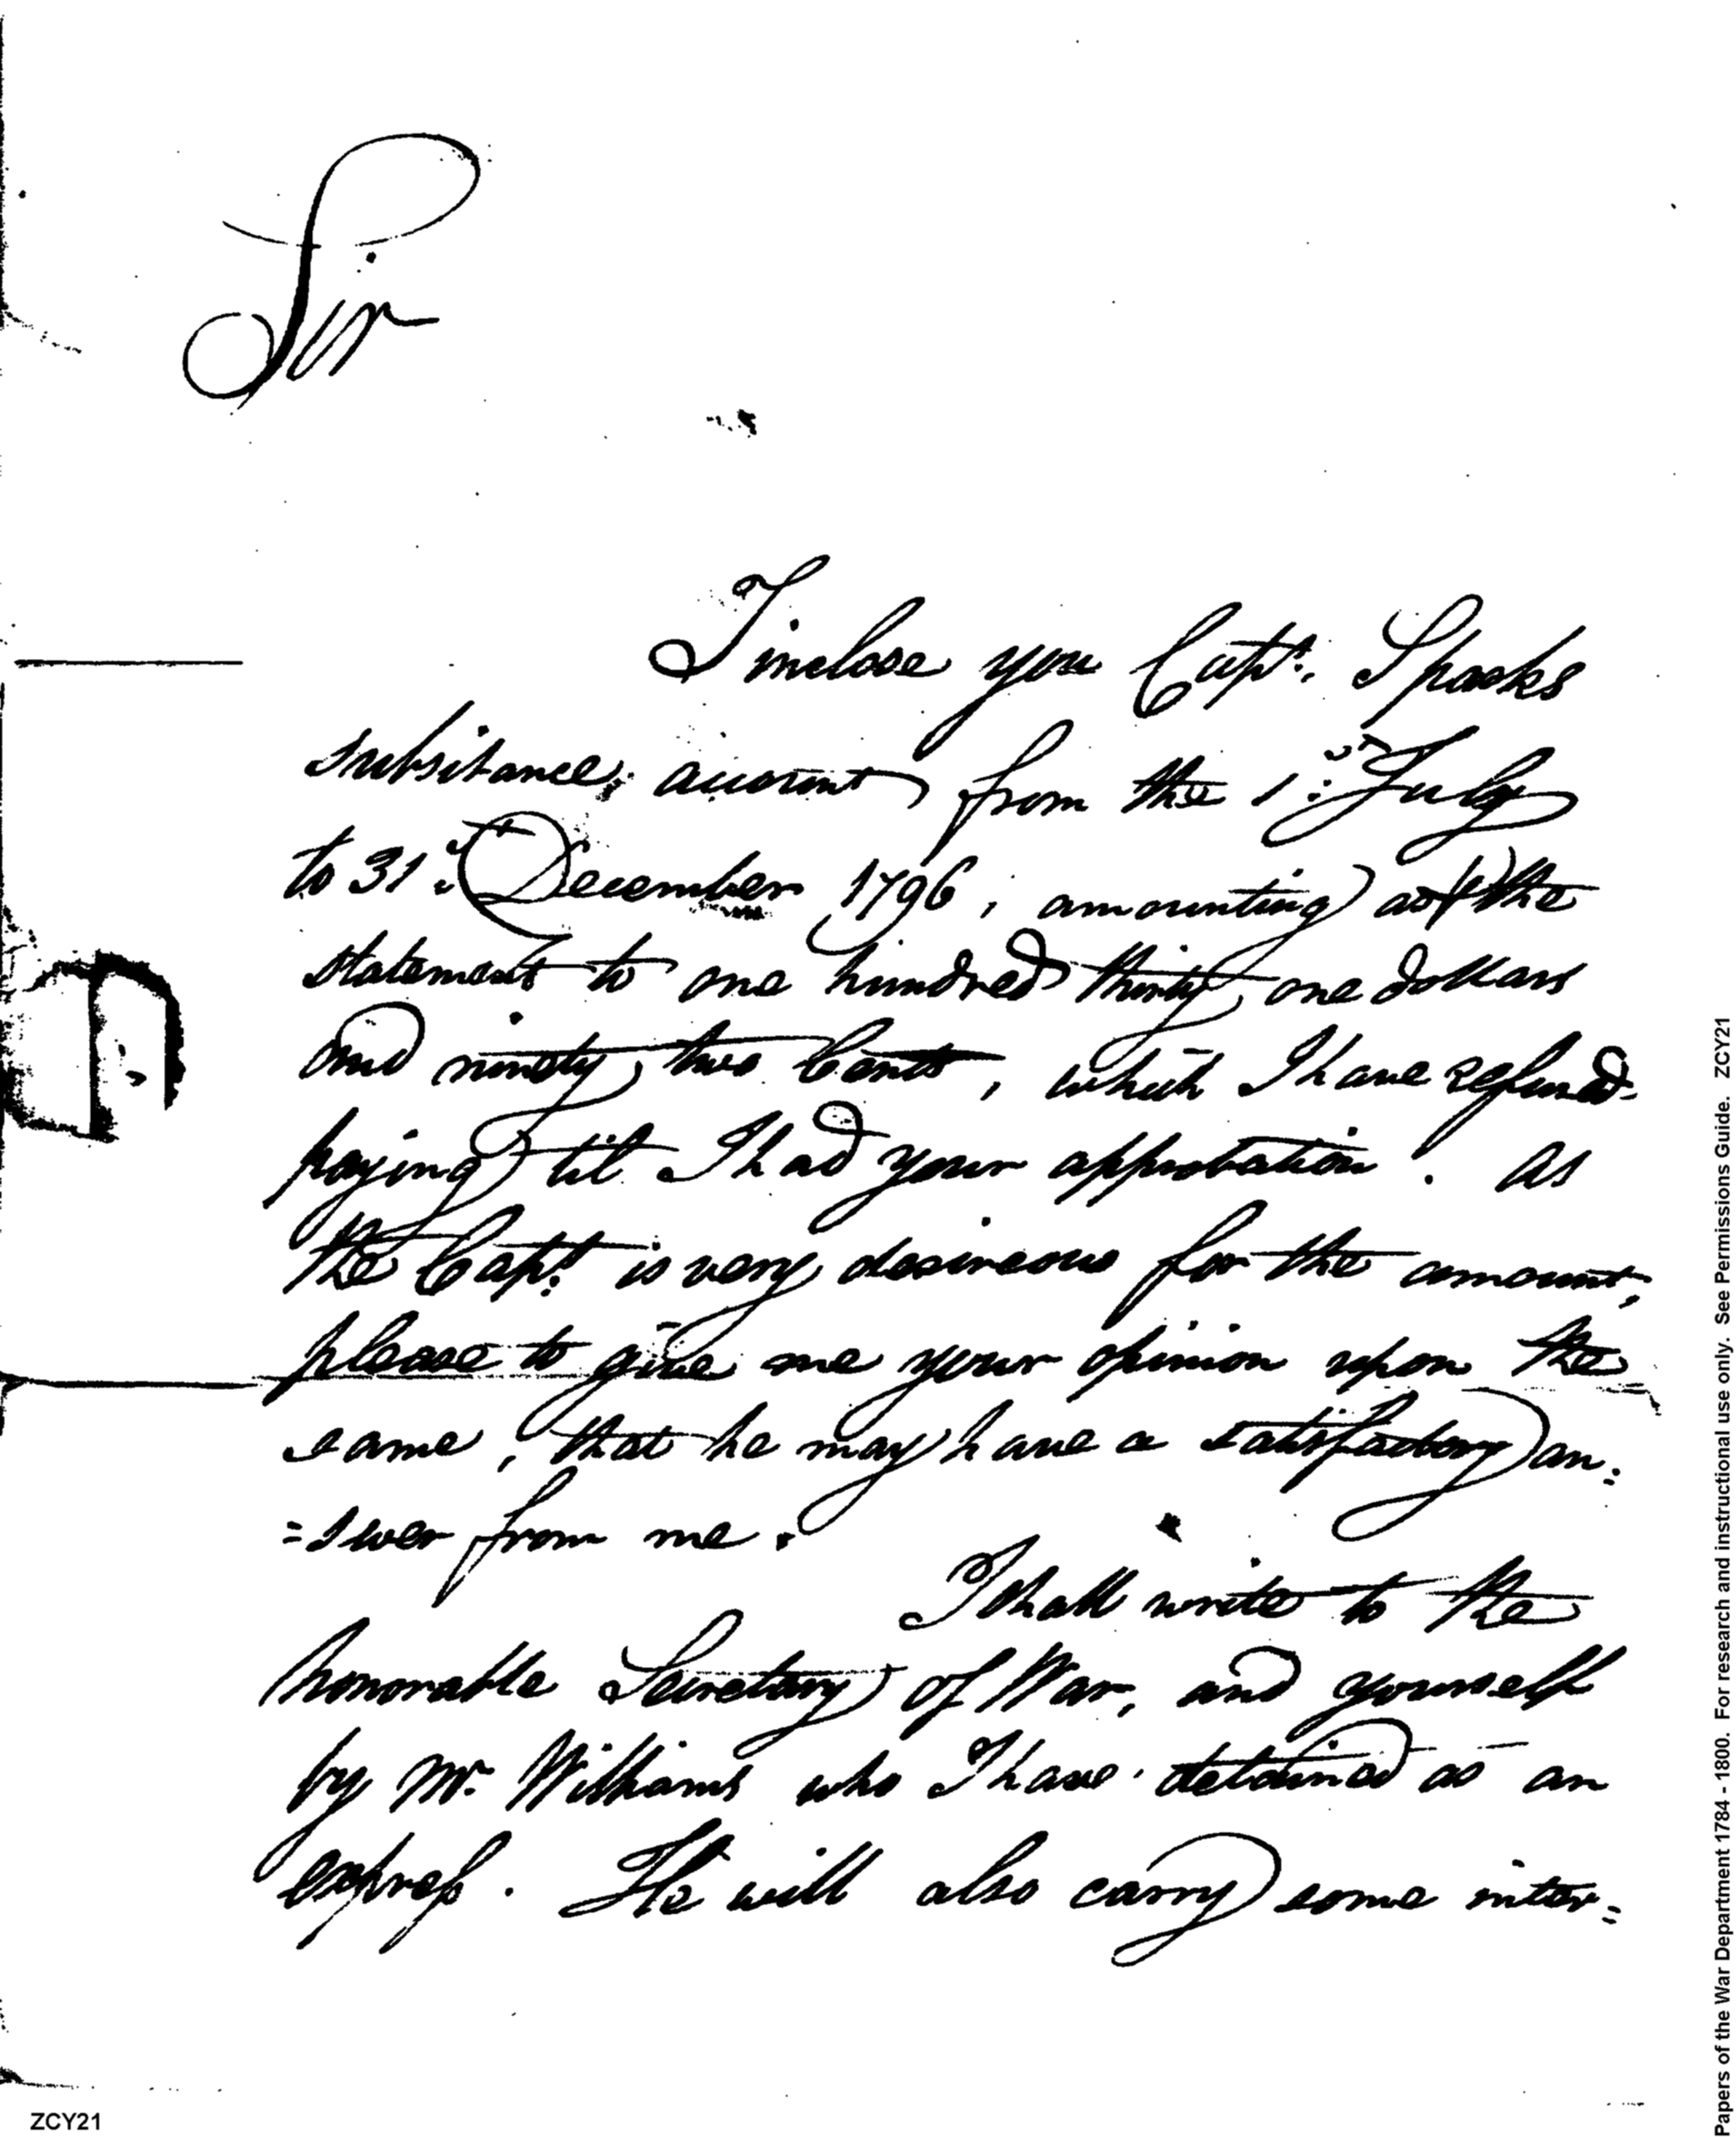 Sir
I inclose you Capt. Sparks
subsitance, account from the 1st July
to 31st December 1796, amounting as p the
statement to one hundred thirty one dollars
and ninety two Cents, which I have refused
paying til I had your approbation. As
the Capt. is very desireous for the amount,
please to give me your opinion upon the
same, that he may have a satisfactory an=
=swer from me.
I shall write to the
honorable Secretary of War, and yourself
by Mr. Williams who I have detained as an
express. He will also carry some inter=
ZCY21
Papers of the War Department 1784 - 1800. For research and instructional use only. See Permissions Guide. ZCY21